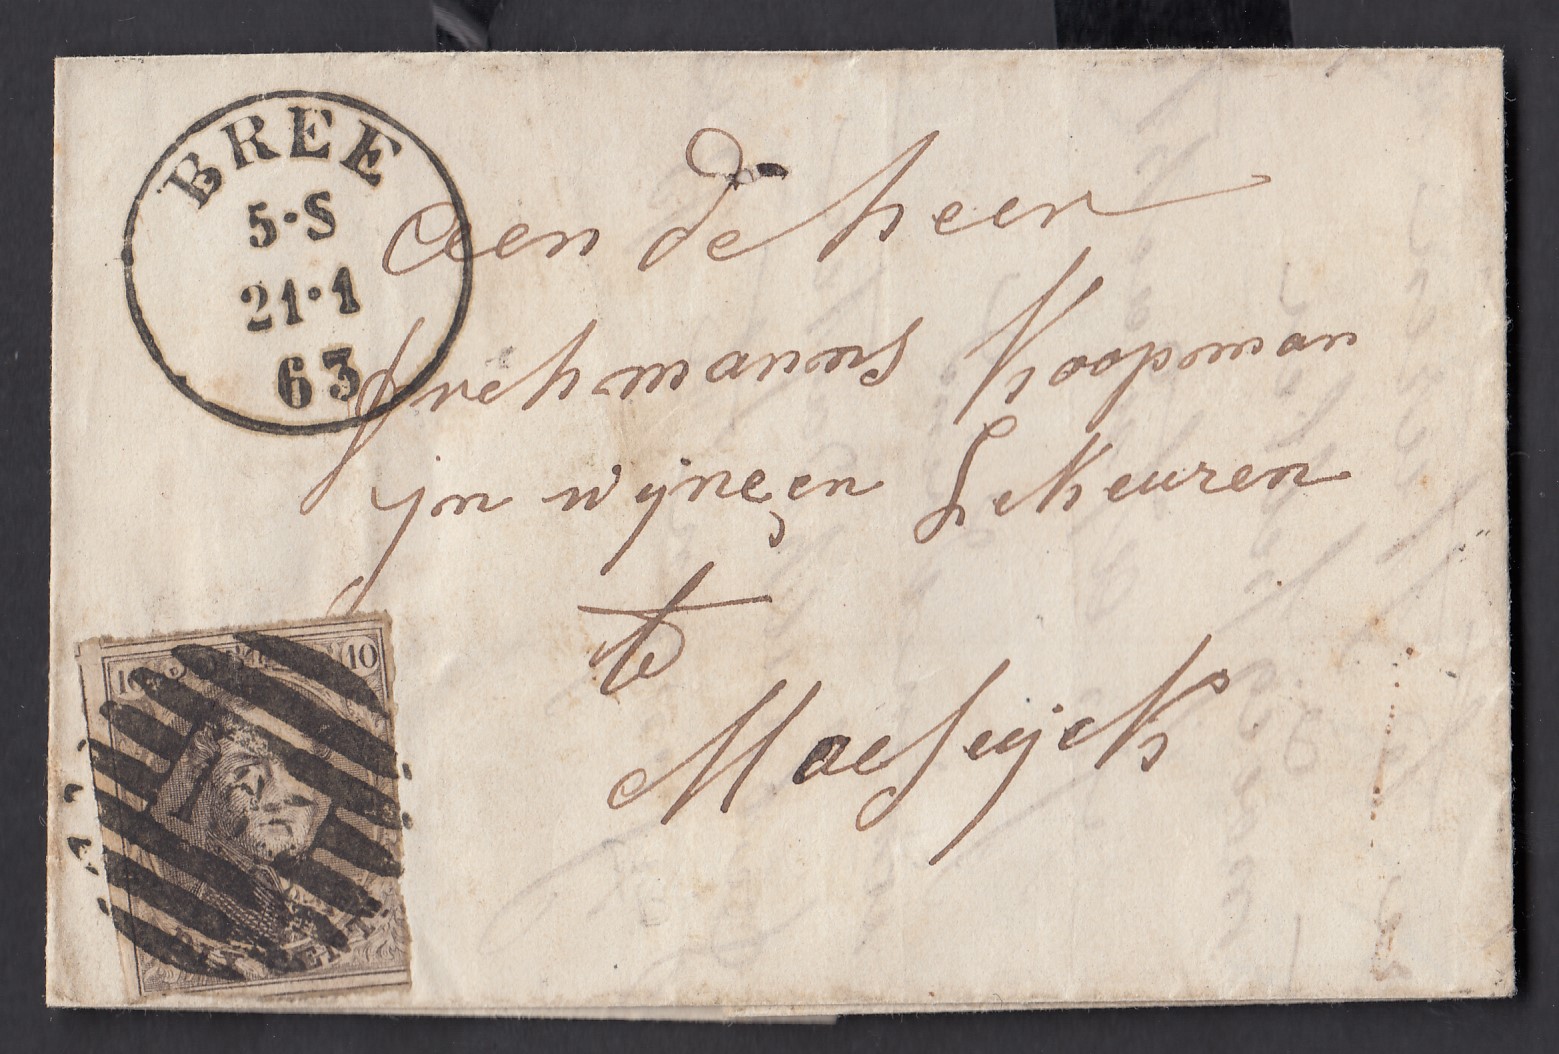 BREE
5·S
21·1
63
Aen de heer
brehmanns Koopman
ijn wijne en Lekeuren
te
Maeseijck
10 10